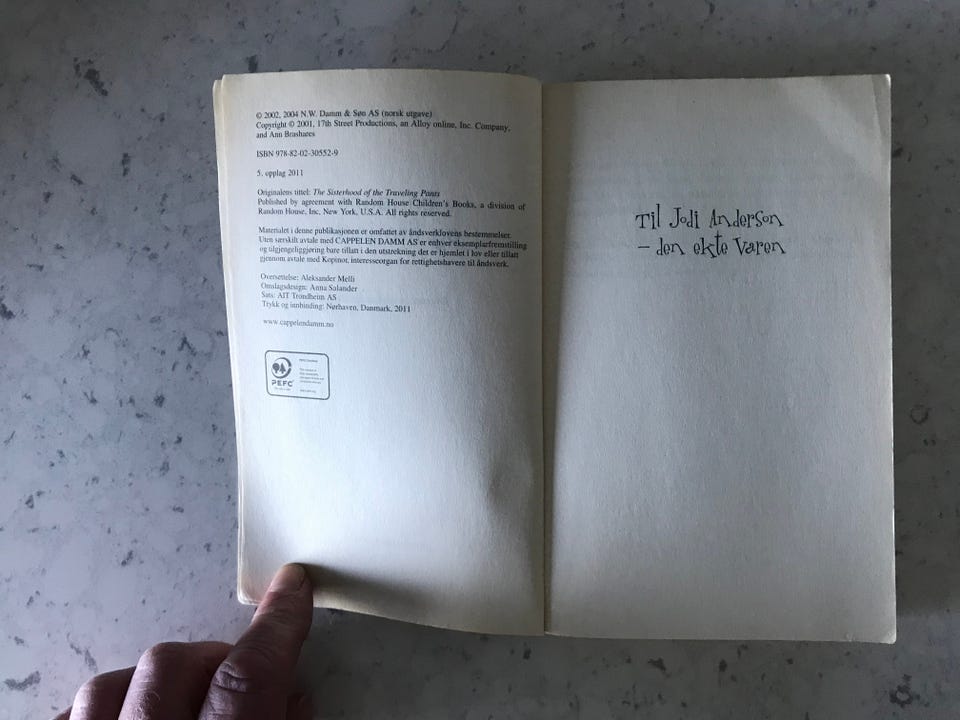 © 2002, 2004 N.W. Damm & Søn AS (norsk utgave)
Copyright © 2001, 17th Street Productions, an Alloy online, Inc. Company,
and Ann Brashares
ISBN 978-82-02-30552-9
5. opplag 2011
Originalens tittel: The Sisterhood of the Traveling Pants
Published by agreement with Random House Children's Books, a division of
Random House, Inc, New York, U.S.A. All rights reserved.
Materialet i denne publikasjonen er omfattet av åndsverklovens bestemmelser.
Uten særskilt avtale med CAPPELEN DAMM AS er enhver eksemplarfremstilling
og tilgjengeliggjøring bare tillatt i den utstrekning det er hjemlet i lov eller tillatt
gjennom avtale med Kopinor, interesseorgan for rettighetshavere til åndsverk.
Oversettelse: Aleksander Melli
Omslagsdesign: Anna Salander
Sats: AIT Trondheim AS
Trykk og innbinding: Nørhaven, Danmark, 2011
www.cappelendamm.no
PEFC
Til Jodi Anderson
– den ekte varen